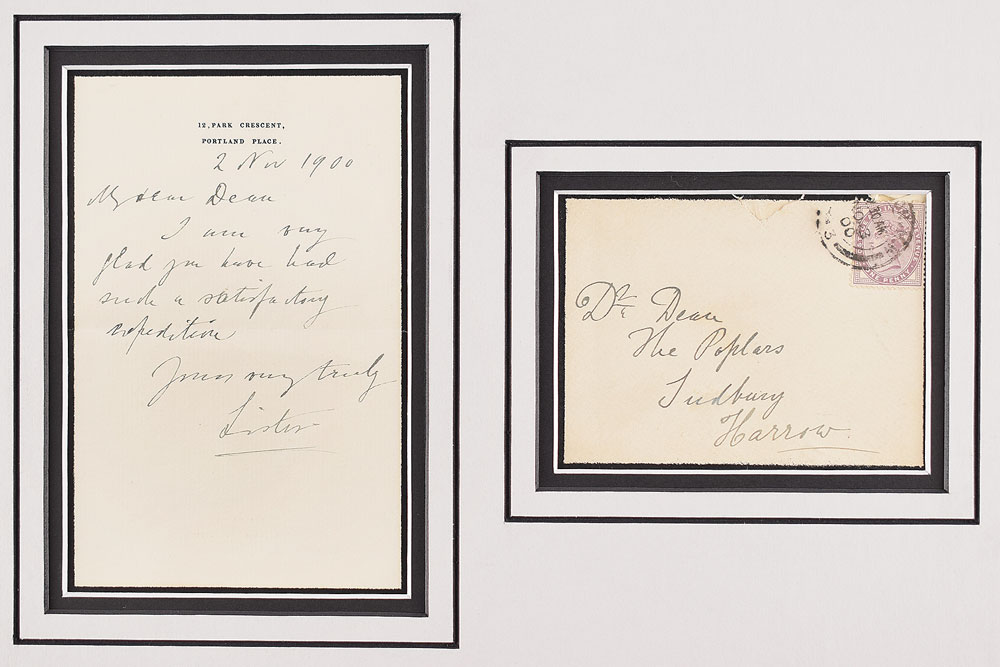 12, PARK CRESCENT,
PORTLAND PLACE.
2 Nov 1900
My dear Dean
I am very
glad you have had
such a satisfactory
expedition
Yours very truly
Lister
Dr Dean
The Poplars
Sudbury
Harrow.